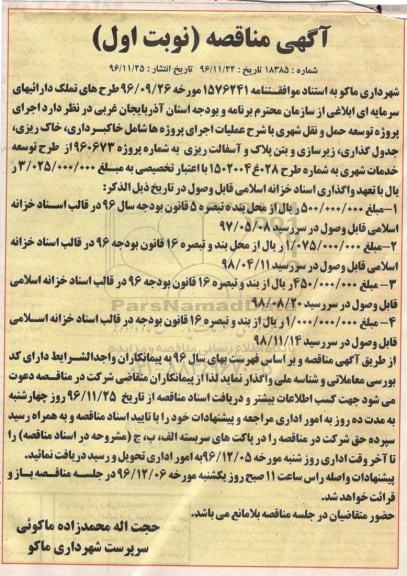 آگهی مناقصه (نوبت اول)
شماره : ۱۸۳۸۵ تاریخ : ۹۶/۱۱/۲۲ تاریخ انتشار : ۹۶/۱۱/۲۵
شهرداری ماکو به استناد موافقتنامه ۱۵۷۶۲۴۱ مورخه ۹۶/۰۹/۲۶ طرح های تملک دارائیهای
سرمایه ای ابلاغی از سازمان محترم برنامه و بودجه استان آذربایجان غربی در نظر دارد اجرای
پروژه توسعه حمل و نقل شهری با شرح عملیات اجرای پروژه ها شامل خاکبرداری، خاک ریزی،
جدول گذاری، زیرسازی و بتن پلاک و آسفالت ریزی به شماره پروژه ۹۶۰۶۷۳ از طرح توسعه
خدمات شهری به شماره طرح ۰۲۸غ۱۵۰۲۰۰۴ با اعتبار تخصیصی به مبلغ ۳/۰۲۵/۰۰۰/۰۰۰ ر
یال با تعهد واگذاری اسناد خزانه اسلامی قابل وصول در تاریخ ذیل الذکر:
۱–مبلغ ۵۰۰/۰۰۰/۰۰۰ ریال از محل بند ه تبصره ۵ قانون بودجه سال ۹۶ در قالب اسناد خزانه
اسلامی قابل وصول در سررسید ۹۷/۰۵/۰۸
۲–مبلغ ۱/۰۷۵/۰۰۰/۰۰۰ ریال از محل بند و تبصره ۱۶ قانون بودجه ۹۶ در قالب اسناد خزانه
اسلامی قابل وصول در سررسید ۹۸/۰۴/۱۱
۳– مبلغ ۴۵۰/۰۰۰/۰۰۰ ریال از بند و تبصره ۱۶ قانون بودجه در قالب اسناد خزانه اسلامی
قابل وصول در سررسید ۹۸/۰۸/۲۰
۴– مبلغ ۱/۰۰۰/۰۰۰/۰۰۰ ریال از بند و تبصره ۱۶ قانون بودجه در قالب اسناد خزانه اسلامی
قابل وصول در سررسید ۹۸/۱۱/۱۴
از طریق آگهی مناقصه و بر اساس فهرست بهای سال ۹۶ به پیمانکاران واجدالشرایط دارای کد
بورسی معاملاتی و شناسه ملی واگذار نماید لذا از پیمانکاران متقاضی شرکت در مناقصه دعوت
می شود جهت کسب اطلاعات بیشتر و دریافت اسناد مناقصه از تاریخ ۹۶/۱۱/۲۵ روز چهارشنبه
به مدت ده روز به امور اداری مراجعه و پیشنهادات خود را با تایید اسناد مناقصه و به همراه رسید
سپرده حق شرکت در مناقصه را در پاکت های سربسته الف، ب، ج (مشروحه در اسناد مناقصه) را
تا آخر وقت اداری روز شنبه مورخه ۹۶/۱۲/۰۵ به امور اداری تحویل و رسید دریافت نمائید.
پیشنهادات واصله راس ساعت ۱۱ صبح روز یکشنبه مورخه ۹۶/۱۲/۰۶ در جلسه مناقصه باز و
قرائت خواهد شد.
حضور متقاضیان در جلسه مناقصه بلامانع می باشد.
حجت اله محمدزاده ماکوئی
سرپرست شهرداری ماکو
ParsNamadData